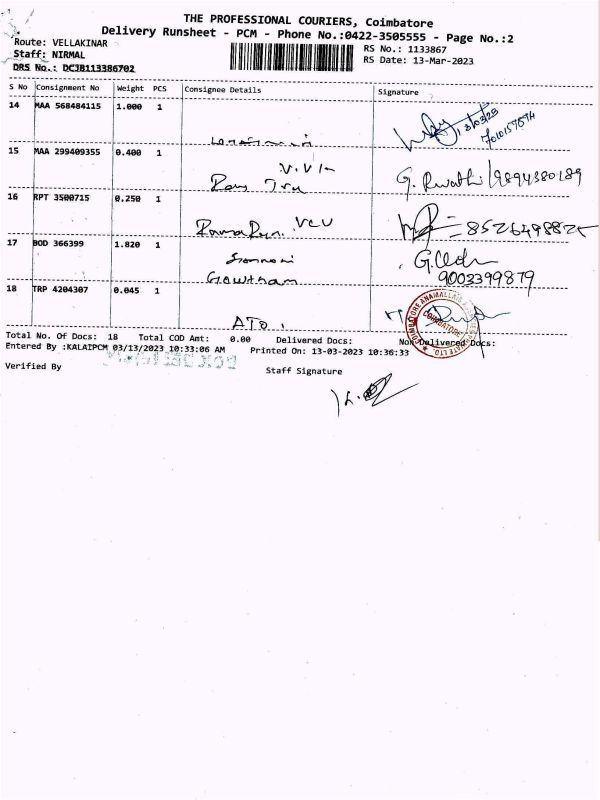 THE PROFESSIONAL COURIERS, Coimbatore
Delivery Runsheet - PCM - Phone No.:0422-3505555 - Page No.:2
Route: VELLAKINAR
Staff: NIRMAL
DRS No.: DCJB113386702
RS No.: 1133867
RS Date: 13-Mar-2023
S No Consignment No Weight PCS Consignee Details Signature
14 MAA 568484115 1.000 1
13/03/23
15 MAA 299409355 0.400 1
G. Revathi / 9894380189
16 RPT 3500715 0.250 1
VCV
8526498825
17 BOD 366399 1.820 1
Gowtham
9003399879
18 TRP 4204307 0.045 1
ATO
COIMBATORE
Total No. Of Docs: 18 Total COD Amt: 0.00 Delivered Docs: Non Delivered Docs:
Entered By :KALAIPCM 03/13/2023 10:33:06 AM Printed On: 13-03-2023 10:36:33
Verified By Staff Signature